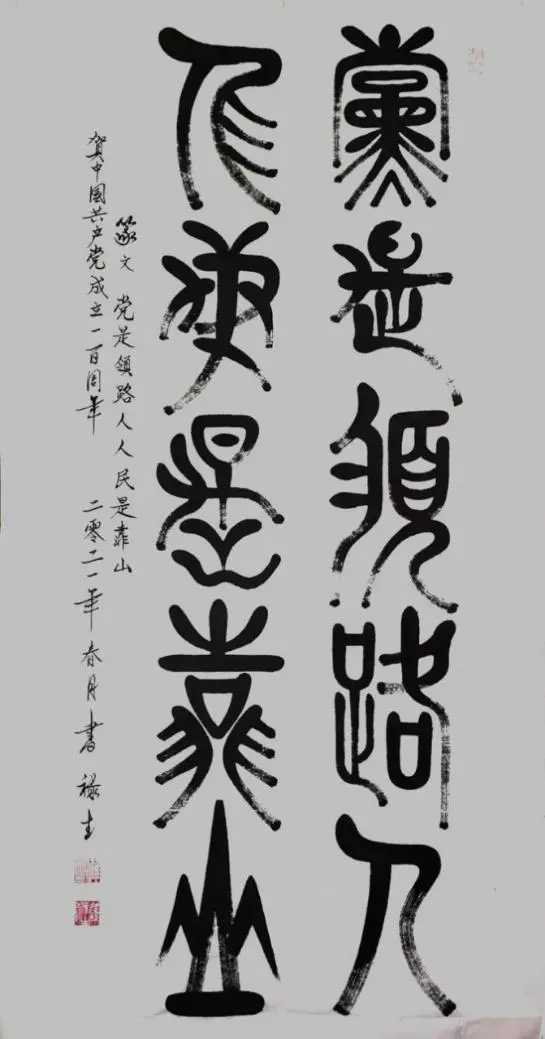 黨是領路人
人民是靠山
篆文 党是領路人人民是靠山
賀中國共产党成立一百周年 二零二一年春月書 禄生